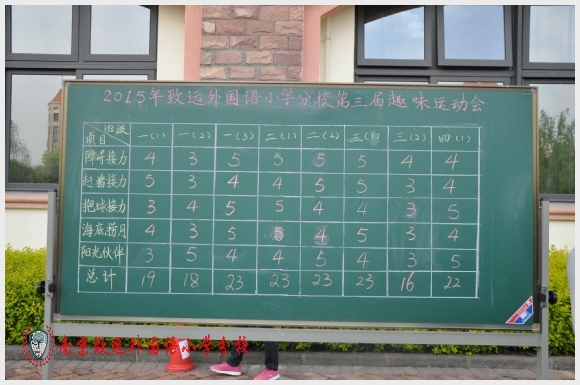 2015年致远外国语小学分校第三届趣味运动会
班级 一(1) 一(2) 一(3) 二(1) 二(2) 三(1) 三(2) 四(1)
项目
障碍接力 4 3 5 5 5 5 4 4
赶猪接力 5 3 4 4 5 5 3 4
抱球接力 3 4 5 5 4 4 3 5
海底捞月 4 3 5 5 4 5 3 4
阳光伙伴 3 5 4 4 5 4 3 5
总计 19 18 23 23 23 23 16 22
南京致远外国语小学分校